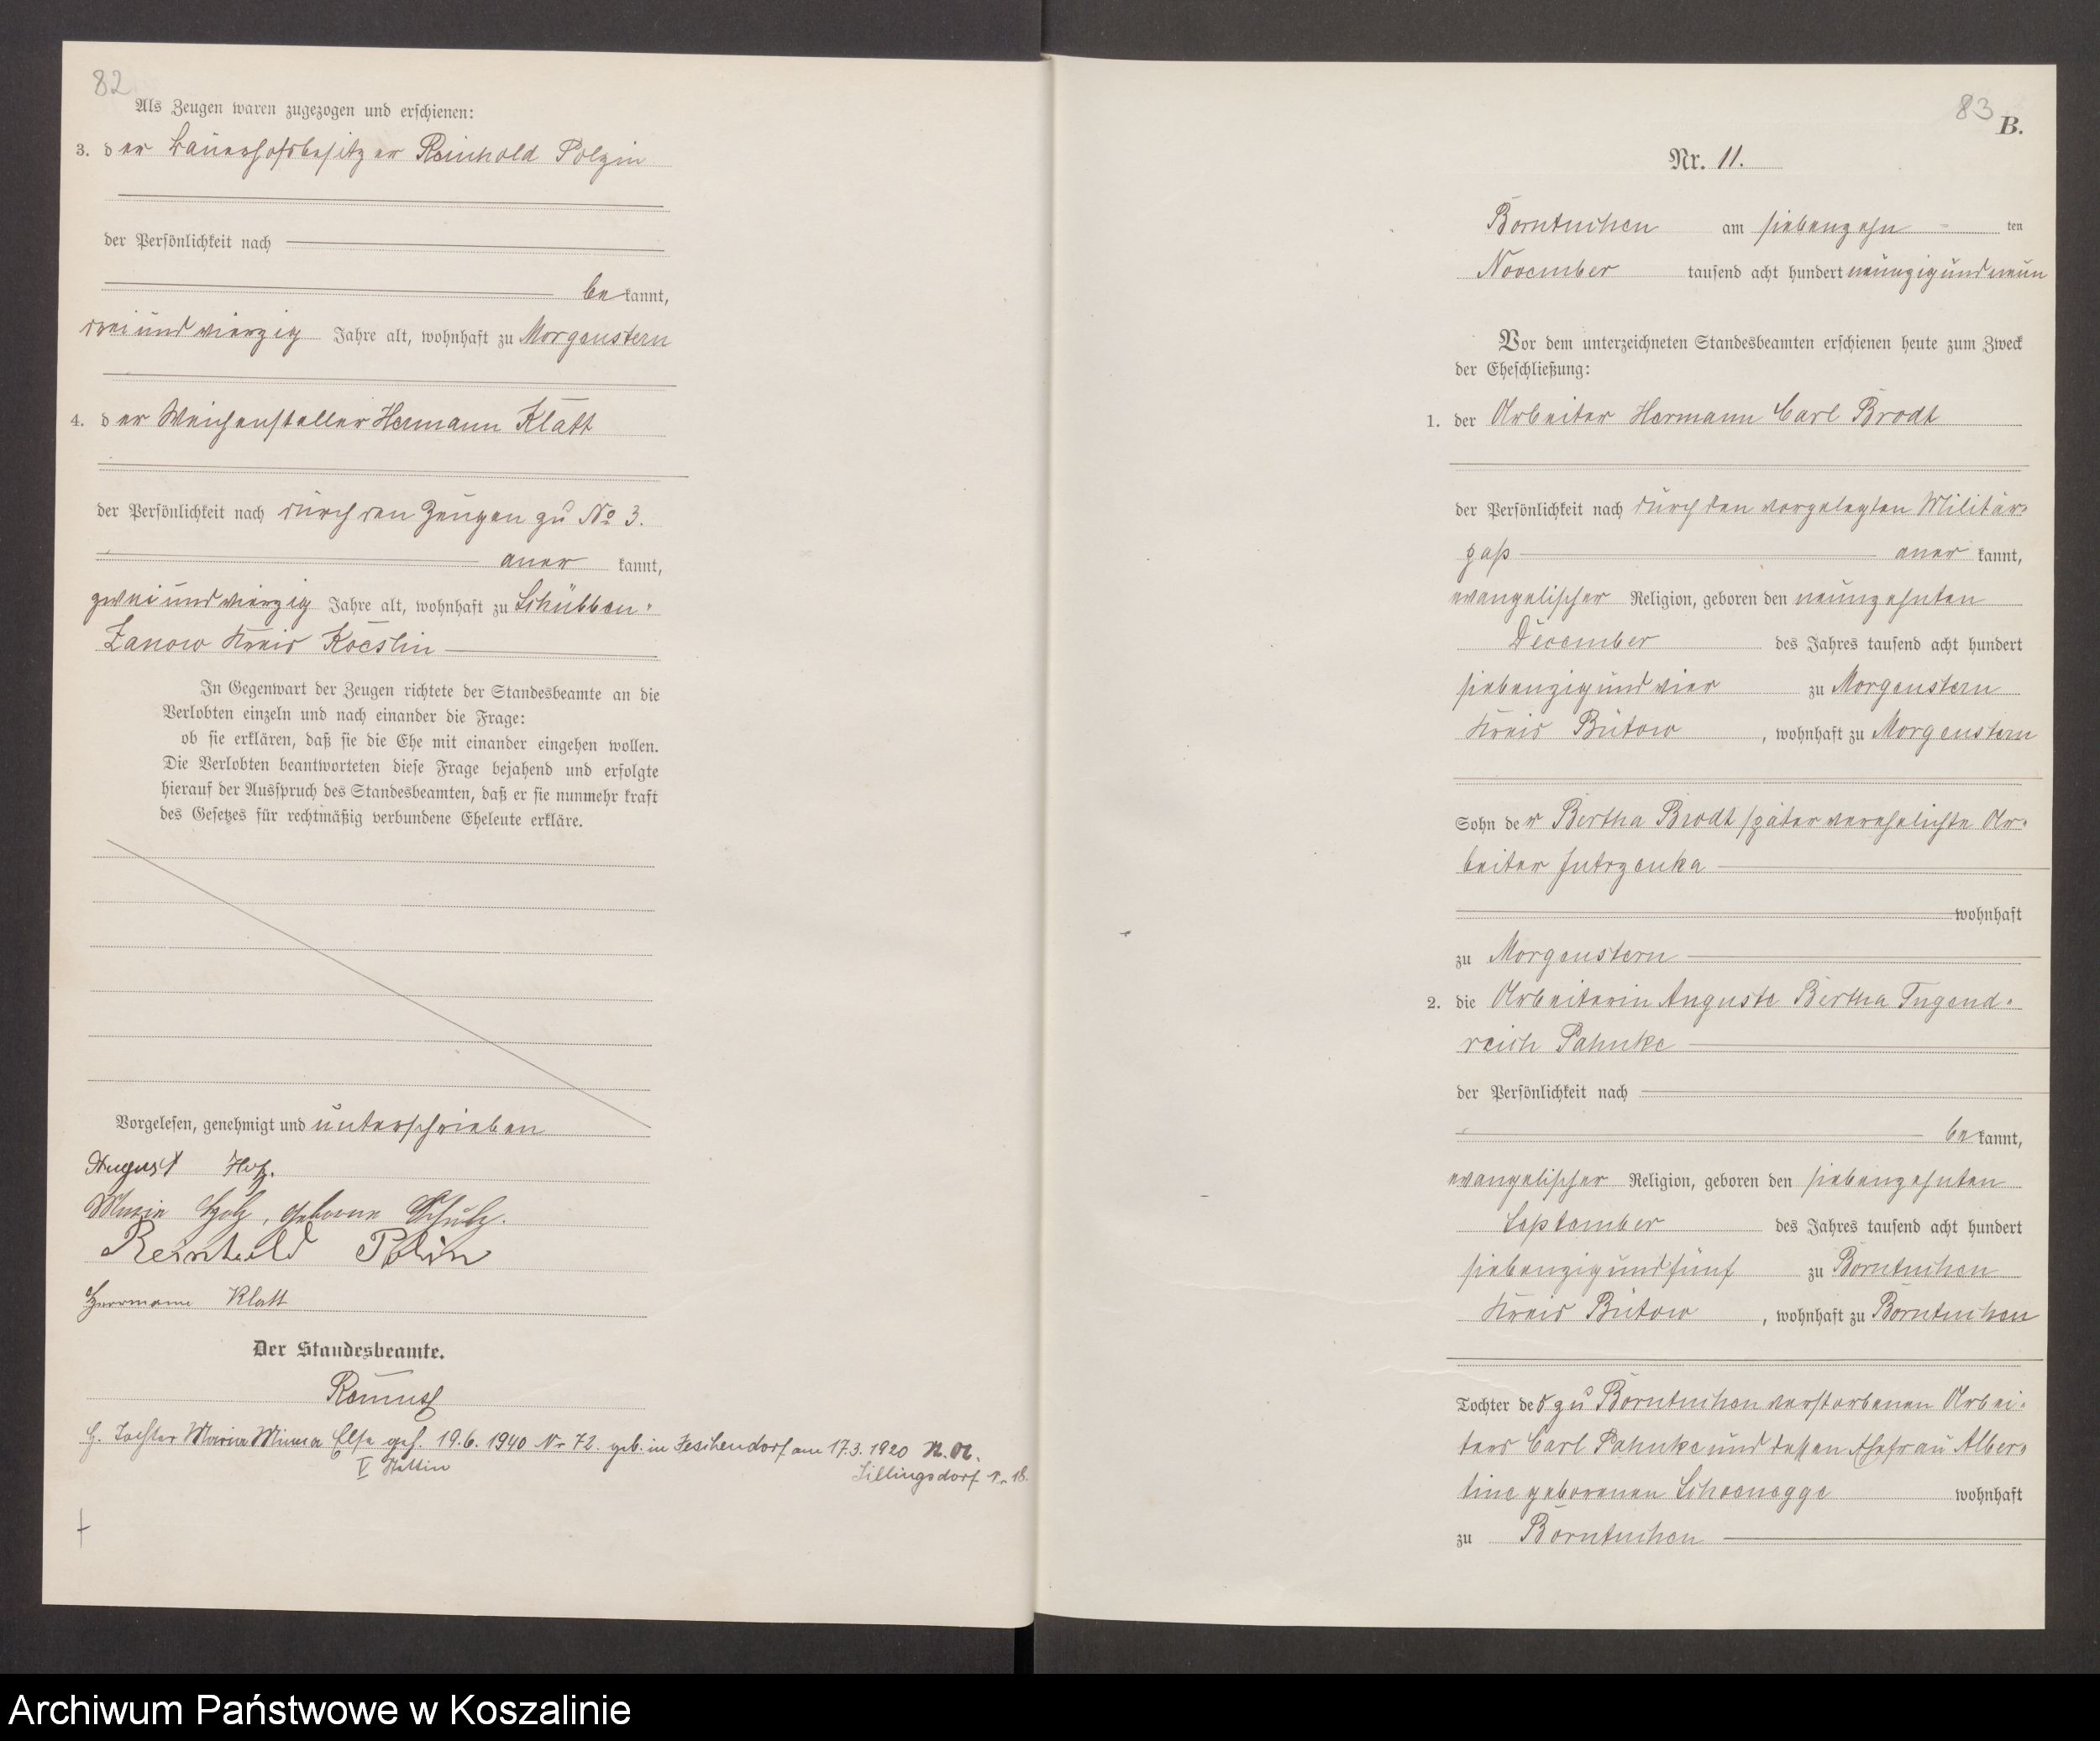 82
Als Zeugen waren zugezogen und erschienen:
3. der Bauerhofsbesitzer Reinhold Polzin
der Persönlichkeit nach
bekannt,
drei und vierzig Jahre alt, wohnhaft zu Morgenstern
4. der Weichensteller Hermann Klatt
der Persönlichkeit nach durch den Zeugen zu No 3.
anerkannt,
zwei und vierzig Jahre alt, wohnhaft zu Schübben-
Zanow Kreis Koeslin
In Gegenwart der Zeugen richtete der Standesbeamte an die
Verlobten einzeln und nach einander die Frage:
ob sie erklären, daß sie die Ehe mit einander eingehen wollen.
Die Verlobten beantworteten diese Frage bejahend und erfolgte
hierauf der Ausspruch des Standesbeamten, daß er sie nunmehr kraft
des Gesetzes für rechtmäßig verbundene Eheleute erkläre.
Vorgelesen, genehmigt und unterschrieben
August
Marie Holz, geborene Schulz.
Reinhold Polzin
Herrmann Klatt
Der Standesbeamte.
Tochter Maria Minna Elsa geh. 19.6.1940 Nr 72. geb. in Zeschendorf am 17.3.1920
V Stettin
Sillingsdorf Nr 18.
83
B.
Nr. 11.
Borntuchen am siebenzehn ten
November tausend acht hundert neunzig und neun
Vor dem unterzeichneten Standesbeamten erschienen heute zum Zweck
der Eheschließung:
1. der Arbeiter Hermann Carl Brodt
der Persönlichkeit nach durch den vorgelegten Militär-
paß anerkannt,
evangelischer Religion, geboren den neunzehnten
December des Jahres tausend acht hundert
siebenzig und vier zu Morgenstern
Kreis Bütow, wohnhaft zu Morgenstern
Sohn der Bertha Brodt später verehelichte Ar-
beiter Jutrzenka
wohnhaft
zu Morgenstern
2. die Arbeiterin Auguste Bertha Tugend-
reich Pahnke
der Persönlichkeit nach
bekannt,
evangelischer Religion, geboren den siebenzehnten
September des Jahres tausend acht hundert
siebenzig und fünf zu Borntuchen
Kreis Bütow, wohnhaft zu Borntuchen
Tochter des zu Borntuchen verstorbenen Arbei-
ters Carl Pahnke und dessen Ehefrau Alber-
tine geborenen Schoenegge wohnhaft
zu Borntuchen
Archiwum Państwowe w Koszalinie